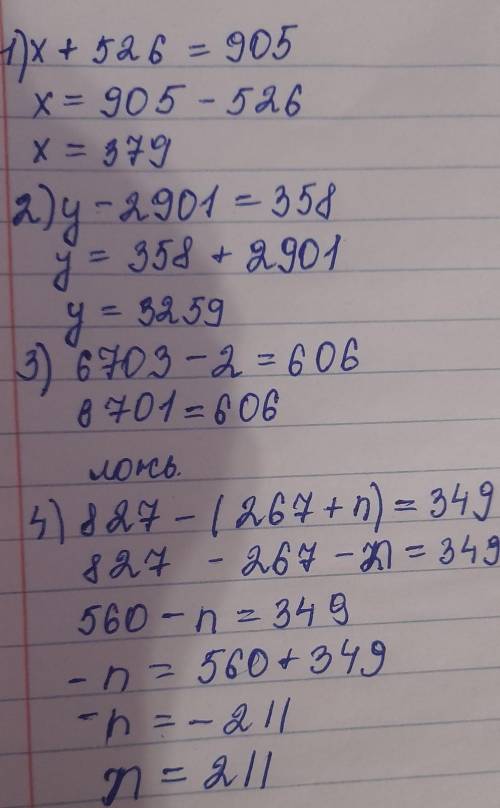 1) x + 526 = 905
x = 905 - 526
x = 379
2) y - 2901 = 358
y = 358 + 2901
y = 3259
3) 6703 - 2 = 606
6701 = 606
ложь.
4) 827 - (267 + n) = 349
827 - 267 - n = 349
560 - n = 349
-n = 560 + 349
-n = -211
n = 211